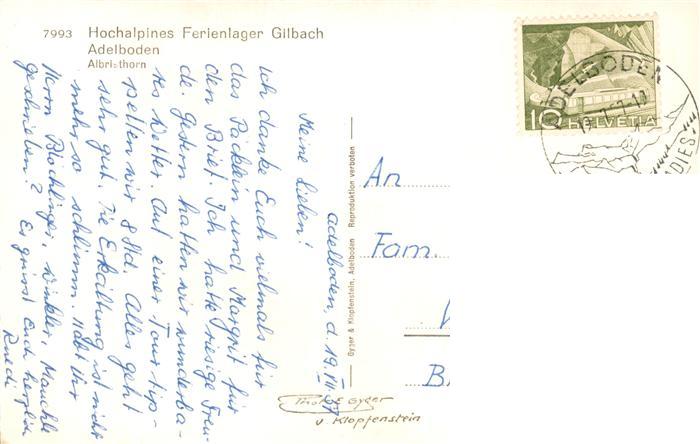 7993 Hochalpines Ferienlager Gilbach
Adelboden
Albristhorn
Adelboden, d. 19. VII
Meine Lieben!
Ich danke Euch vielmals für
das Päcklein und Margrit für
den Brief. Ich hatte riesige Freu-
de. Gestern hatten wir wunderba-
res Wetter. Auf einer Tour tip-
pelten wir 8 Std. Alles geht
sehr gut. Die Erkältung ist nicht
mehr so schlimm. Habt Ihr
Herrn Blöchlinger, Winkler, Mauchle
geschrieben? Es grüsst Euch herzlich
Ruedi
Gyger & Klopfenstein, Adelboden Reproduktion verboten
An
Fam.
Photo E Gyger
v Klopfenstein
10 HELVETIA
ADELBODEN